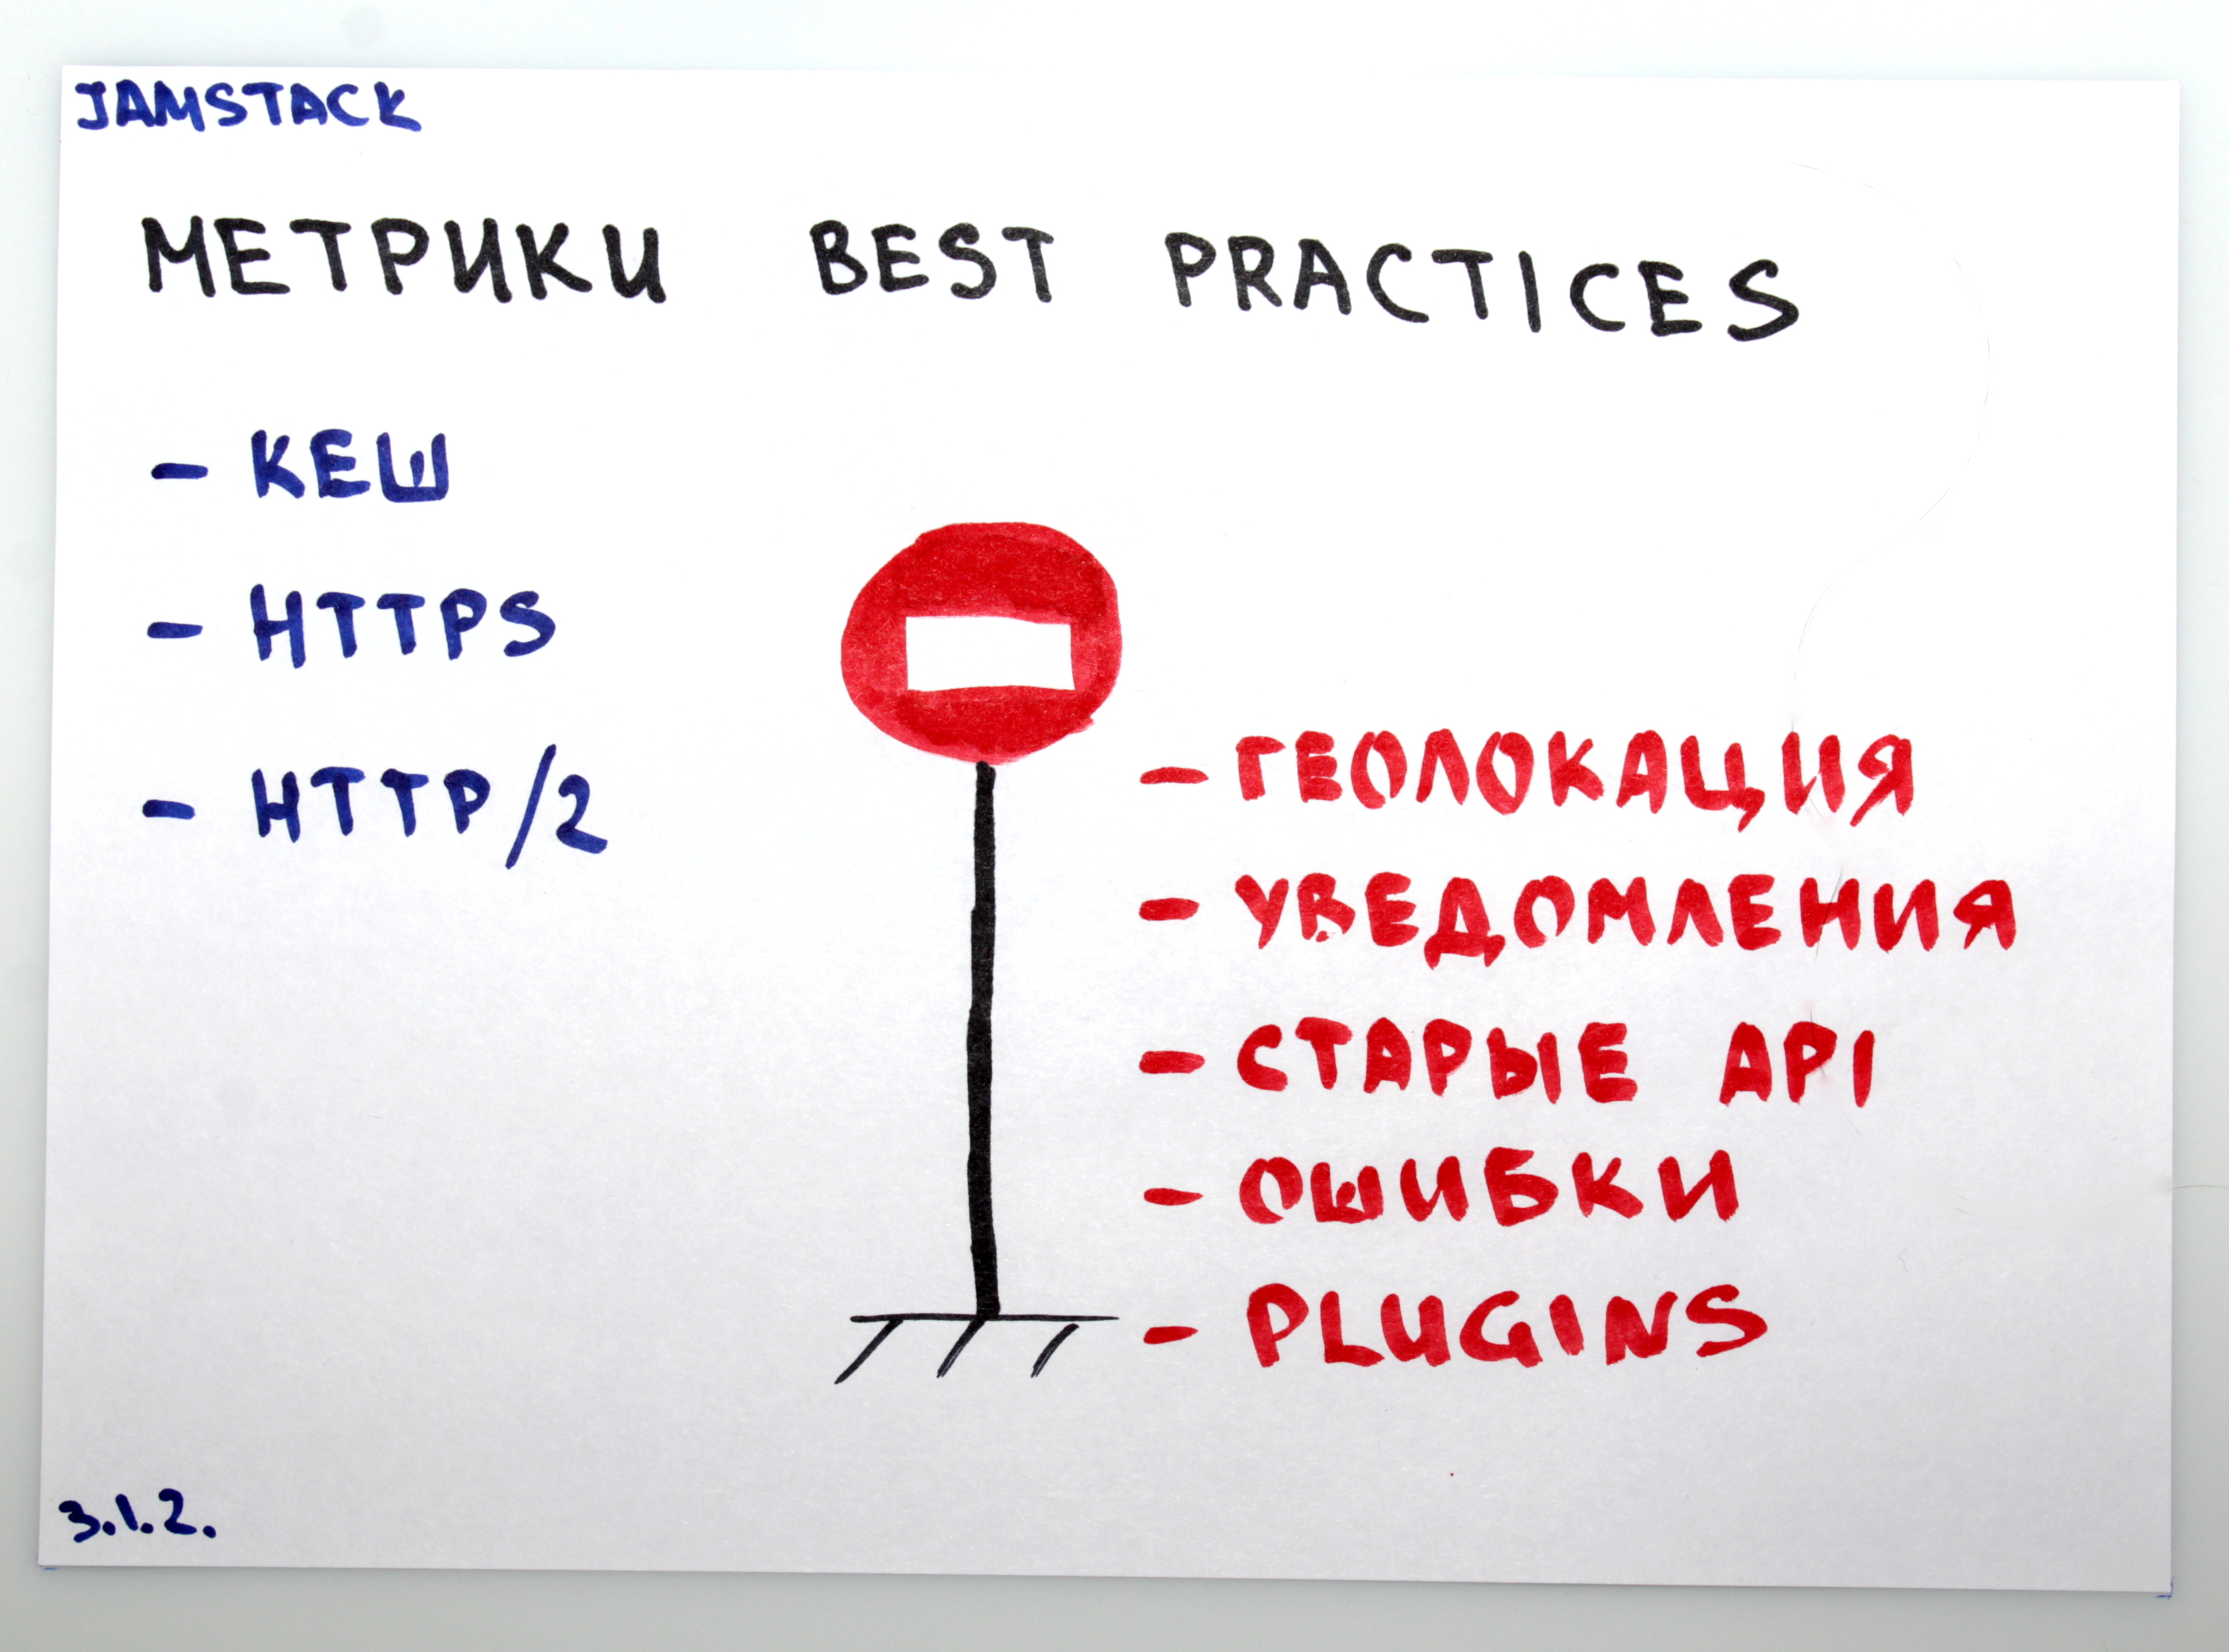 JAMSTACK
МЕТРИКИ BEST PRACTICES
- КЕШ
- HTTPS
- HTTP/2
- ГЕОЛОКАЦИЯ
- УВЕДОМЛЕНИЯ
- СТАРЫЕ API
- ОШИБКИ
- PLUGINS
3.1.2.